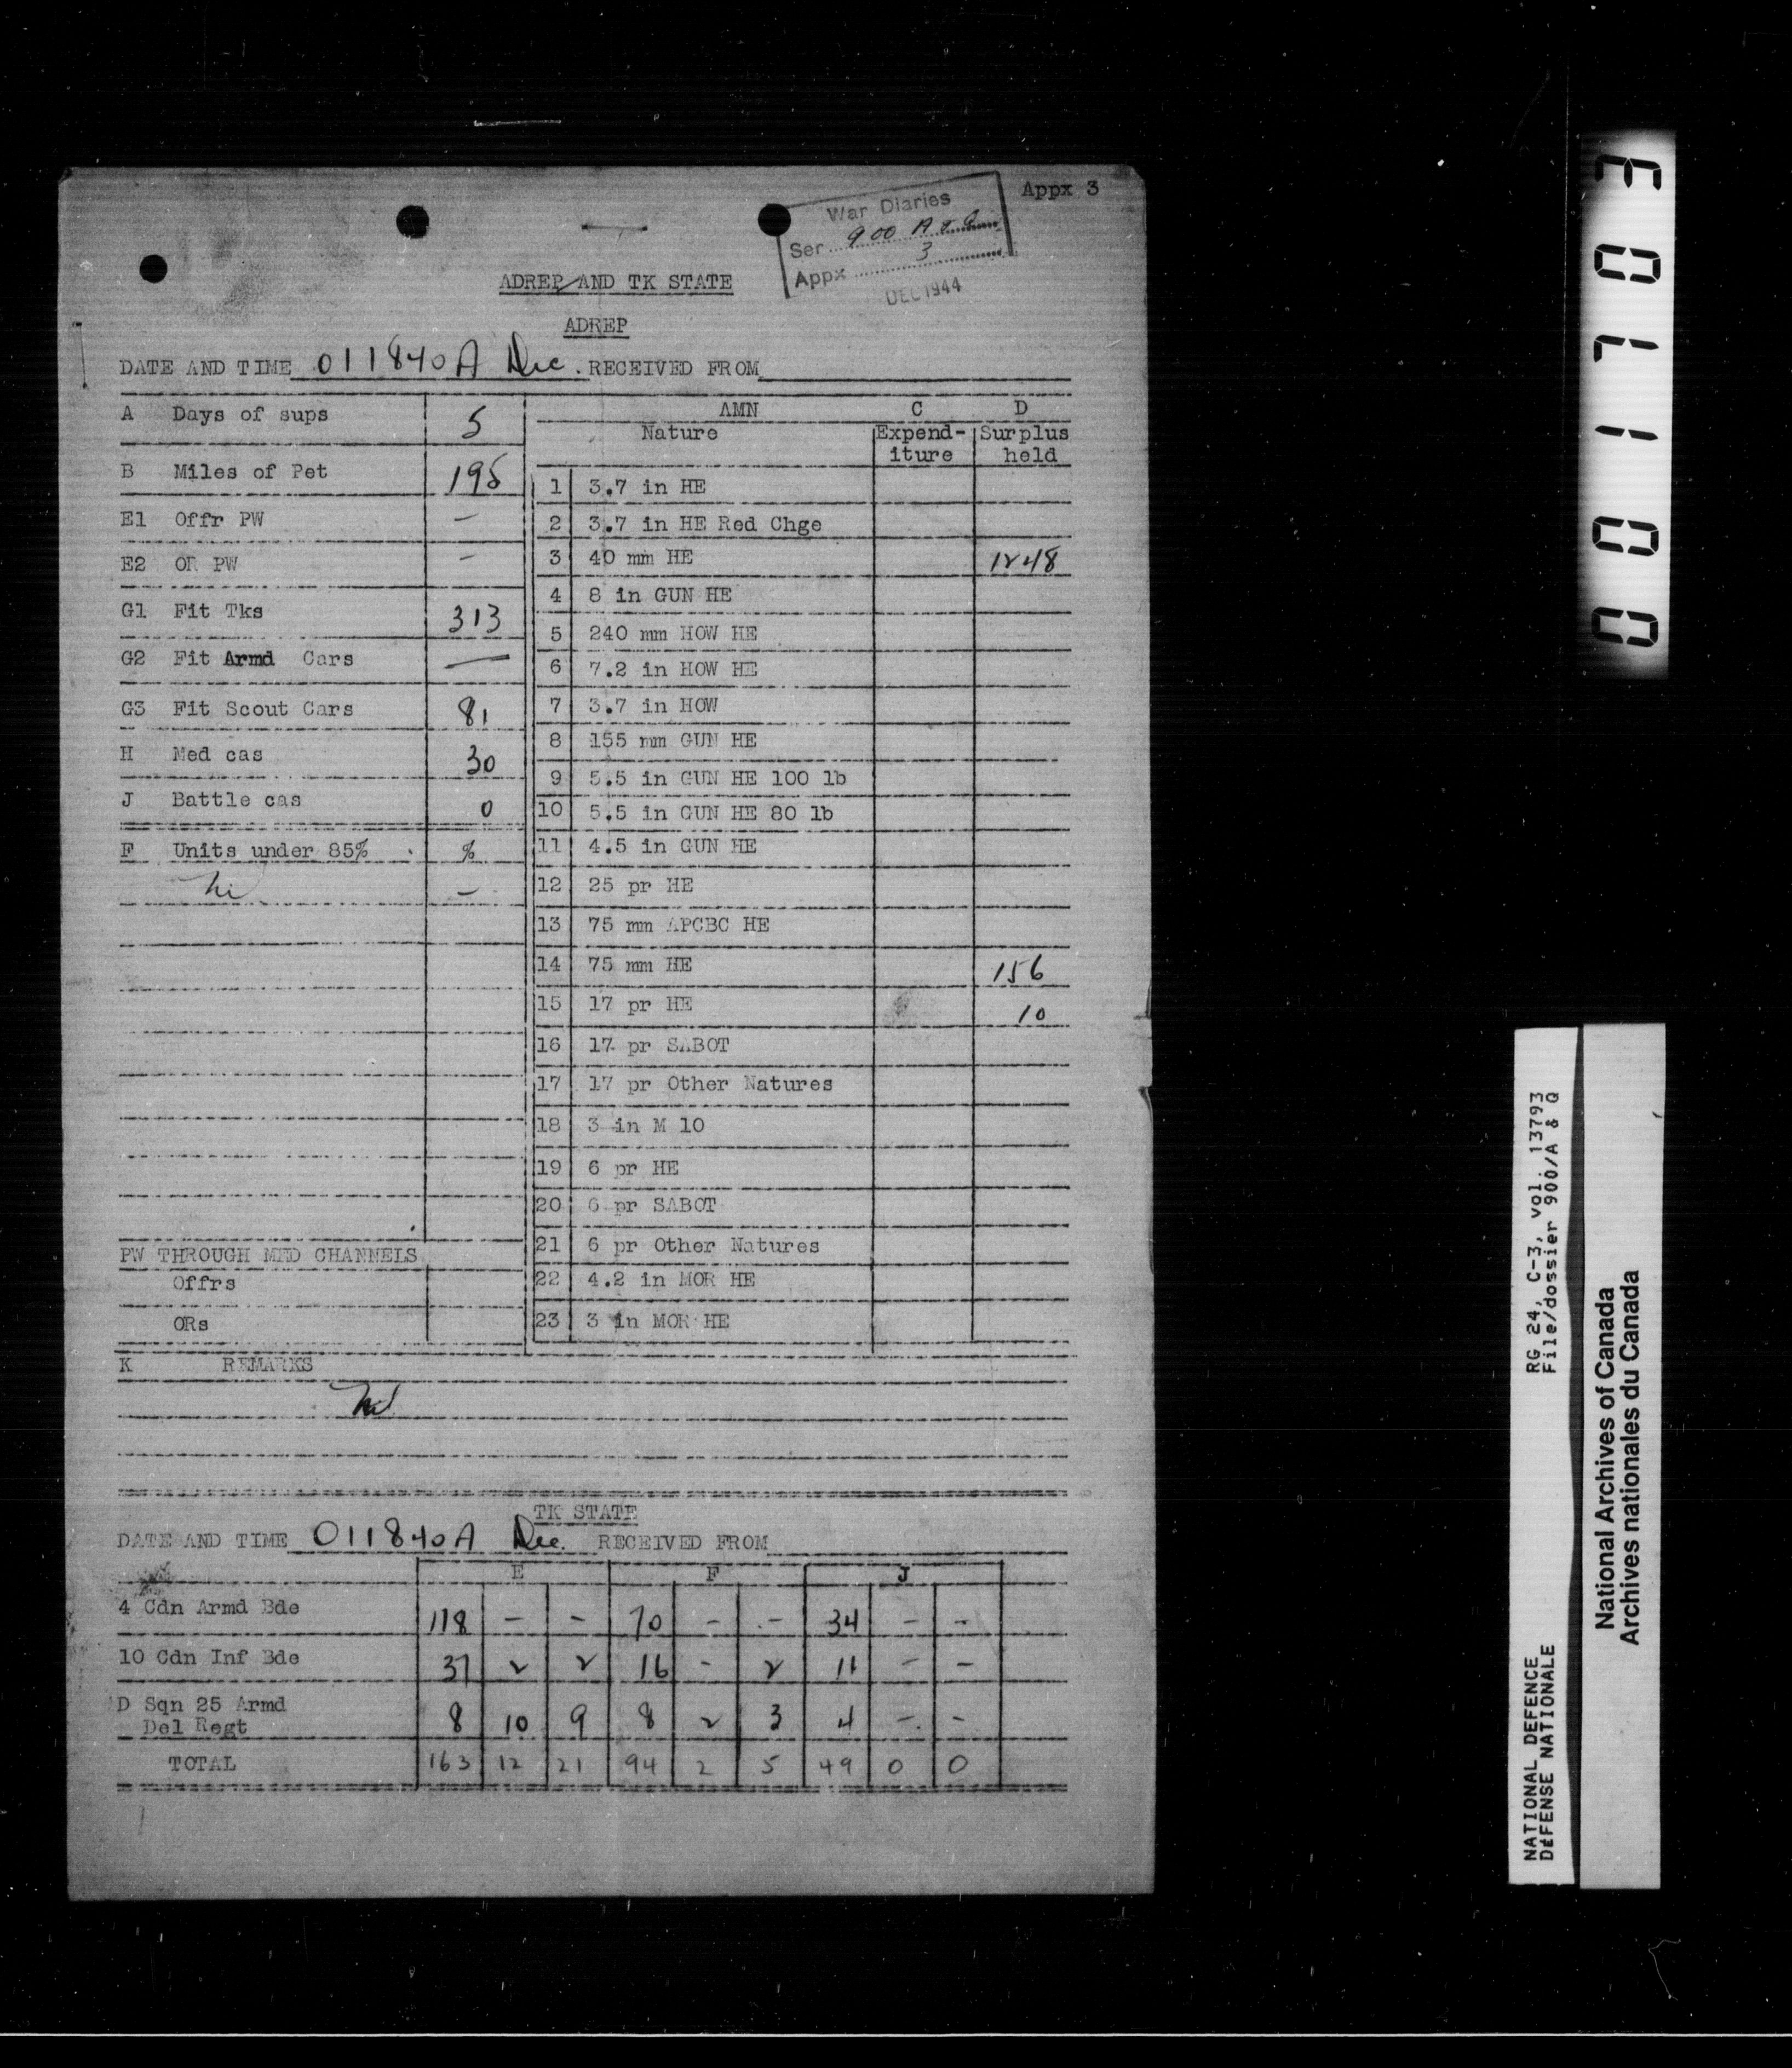 Appx 3
War Diaries
Ser 900 A & Q
Appx 3
DEC 1944
ADREP AND TK STATE
ADREP
DATE AND TIME 011840A Dec. RECEIVED FROM
A Days of sups 5
B Miles of Pet 195
E1 Offr PW –
E2 OR PW –
G1 Fit Tks 313
G2 Fit Armd Cars —
G3 Fit Scout Cars 81
H Med cas 30
J Battle cas 0
F Units under 85% %
Nil –
PW THROUGH MED CHANNELS
Offrs
ORs
AMN C D
Nature Expend- Surplus
iture held
1 3.7 in HE
2 3.7 in HE Red Chge
3 40 mm HE 1248
4 8 in GUN HE
5 240 mm HOW HE
6 7.2 in HOW HE
7 3.7 in HOW
8 155 mm GUN HE
9 5.5 in GUN HE 100 lb
10 5.5 in GUN HE 80 lb
11 4.5 in GUN HE
12 25 pr HE
13 75 mm APCBC HE
14 75 mm HE 156
15 17 pr HE 10
16 17 pr SABOT
17 17 pr Other Natures
18 3 in M 10
19 6 pr HE
20 6 pr SABOT
21 6 pr Other Natures
22 4.2 in MOR HE
23 3 in MOR HE
K REMARKS
Nil
TK STATE
DATE AND TIME 011840A Dec. RECEIVED FROM
E F J
4 Cdn Armd Bde 118 – – 70 – – 34 – –
10 Cdn Inf Bde 37 2 2 16 – 2 11 – –
D Sqn 25 Armd
Del Regt 8 10 9 8 2 3 4 – –
TOTAL 163 12 21 94 2 5 49 0 0
001703
RG 24, C-3, vol. 13793
File/dossier 900/A & Q
NATIONAL DEFENCE
DÉFENSE NATIONALE
National Archives of Canada
Archives nationales du Canada